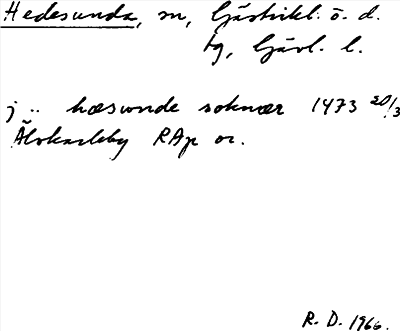 Hedesunda, sn, Gästrikl. ö. d.
tg, Gävl. l.
j .. hæsunde soknær 1473 20/3
Älvkarleby RAp or.
R. D. 1966.